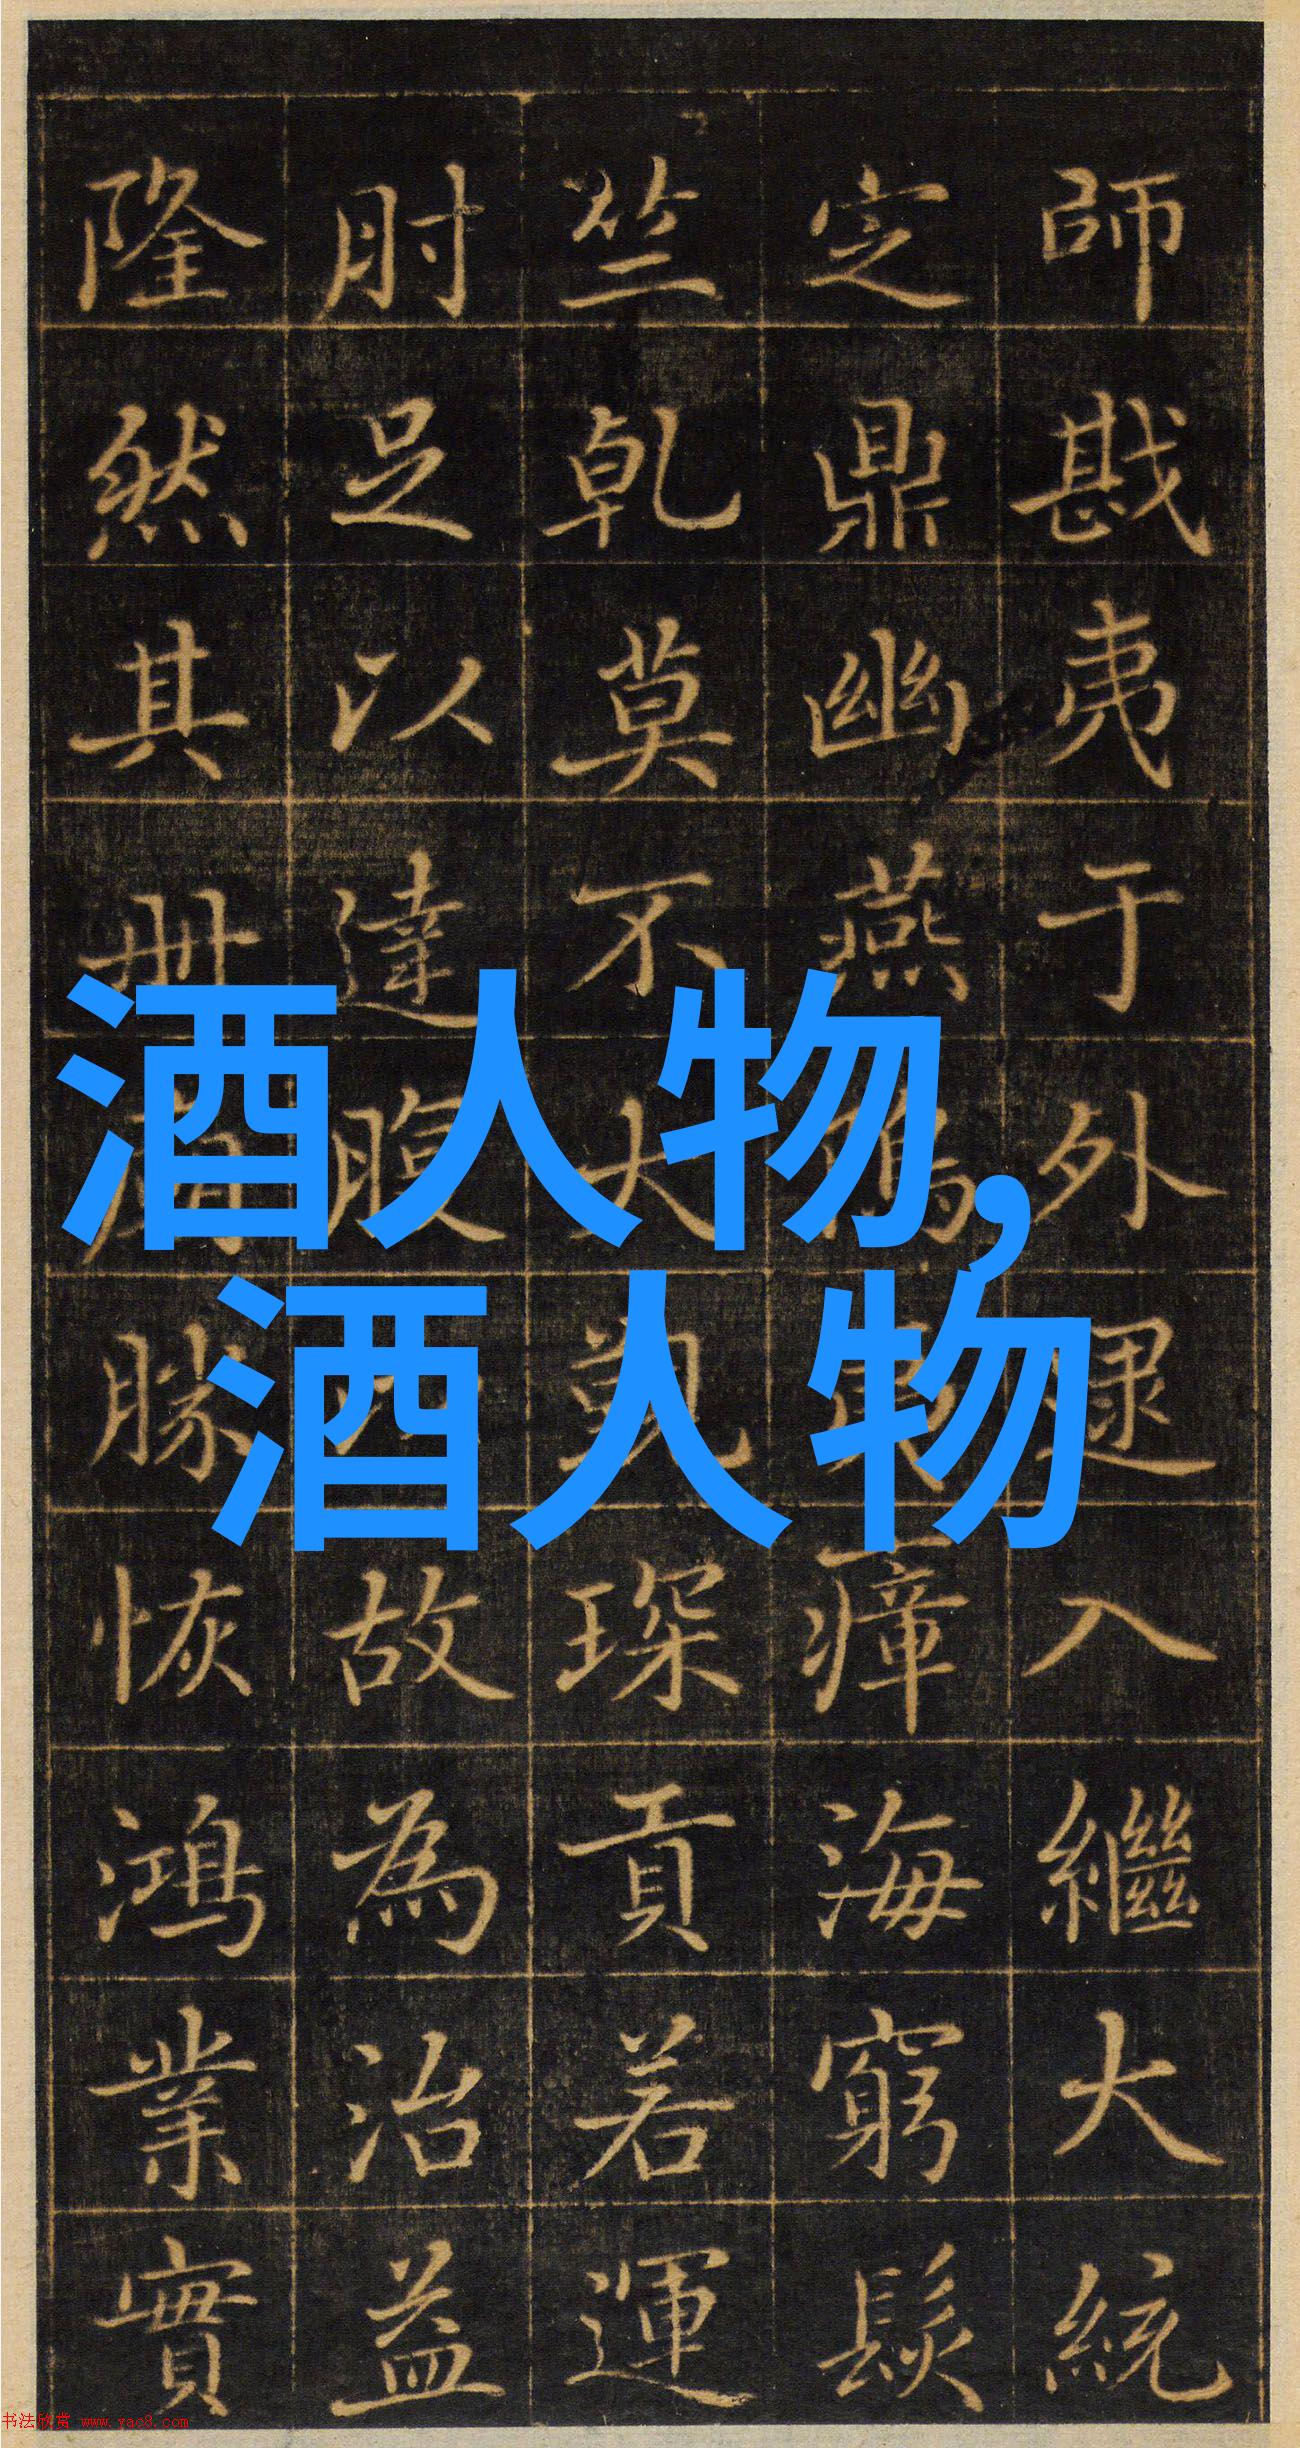 師戡夷于外逮入繼大統
定鼎幽燕瘴海窮髮
竺乾莫不琛貢若運
肘足以達腹故為治益
隆然其冊勝恢鴻業實
酒人物,
酒人物
书法欣赏 www.yac8.com